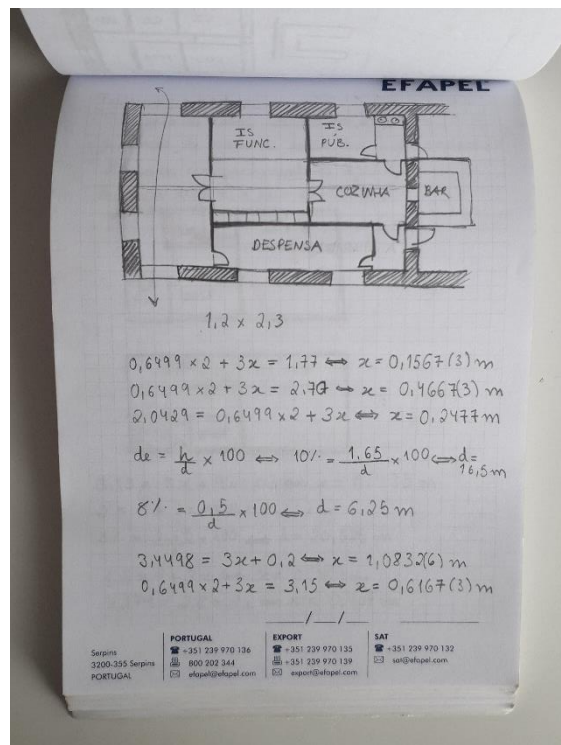 EFAPEL
IS FUNC.
IS PÚB.
COZINHA
BAR
DESPENSA
1,2 x 2,3
0,6499 × 2 + 3x = 1,77 ⇔ x = 0,1567(3) m
0,6499 × 2 + 3x = 2,70 ⇔ x = 0,4667(3) m
2,0429 = 0,6499 × 2 + 3x ⇔ x = 0,2477 m
de = h/d × 100 ⇔ 10% = 1,65/d × 100 ⇔ d = 16,5 m
8% = 0,5/d × 100 ⇔ d = 6,25 m
3,4498 = 3x + 0,2 ⇔ x = 1,0832(6) m
0,6499 × 2 + 3x = 3,15 ⇔ x = 0,6167(3) m
__/__/__
Serpins
3200-355 Serpins
PORTUGAL
PORTUGAL
+351 239 970 136
800 202 344
efapel@efapel.com
EXPORT
+351 239 970 135
+351 239 970 139
export@efapel.com
SAT
+351 239 970 132
sat@efapel.com